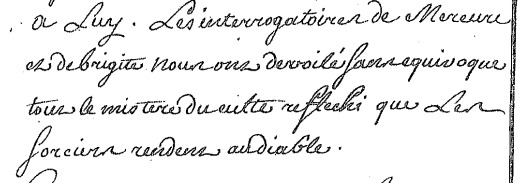 a Luy. Les interrogatoires de Mercure
et de brigite nous ont devoilé sans equivoque
tout le mistere du culte reflechi que Les
sorciers rendent au diable.